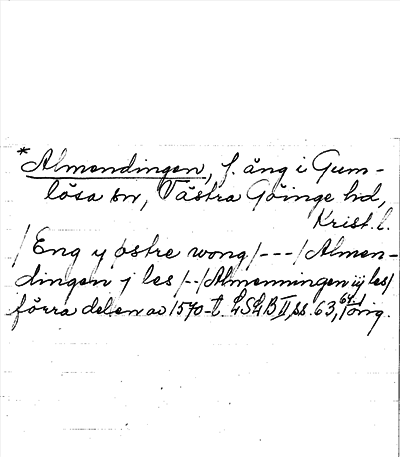 *Almendingen, f. äng i Gum-
lösa sn, Västra Göinge hd,
Krist. l.
/Eng y östre wong/---/Almen-
dingen j les/--/Almenningen iij les/
förra delen av 1570-t. LSLB II ss. 63, 64, orig.